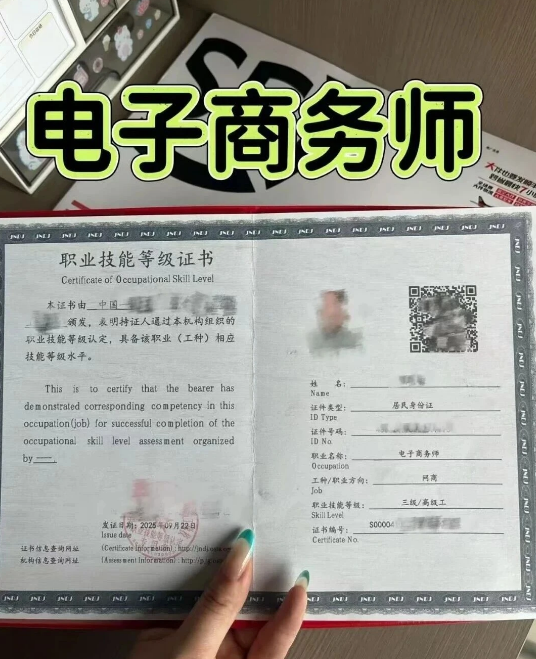 电子商务师
职业技能等级证书
Certificate of Occupational Skill Level
本证书由 中国
颁发，表明持证人通过本机构组织的
职业技能等级认定，具备该职业（工种）相应
技能等级水平。
This is to certify that the bearer has
demonstrated corresponding competency in this
occupation(job) for successful completion of the
occupational skill level assessment organized
by
发证日期：2025年09月22日
Issue date
证书信息查询网址 (Certificate Information): http://jndj.
机构信息查询网址 (Assessment Information): http://p
姓 名：
Name
证件类型： 居民身份证
ID Type
证件号码：
ID No.
职业名称： 电子商务师
Occupation
工种/职业方向： 网商
Job
职业技能等级： 三级/高级工
Skill Level
证书编号： S0000
Certificate No.